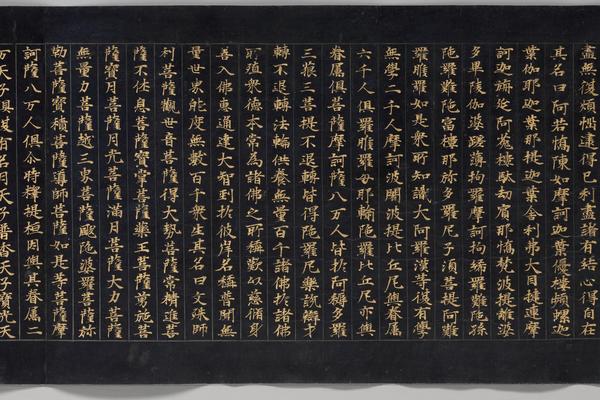 盡無復煩惱逮得己利盡諸有結心得自在
其名曰阿若憍陳如摩訶迦葉優樓頻螺迦
葉伽耶迦葉那提迦葉舍利弗大目揵連摩
訶迦旃延阿㝹樓馱劫賓那憍梵波提離婆
多畢陵伽婆蹉薄拘羅摩訶拘絺羅難陁孫
陁羅難陁富樓那弥多羅尼子須菩提阿難
羅睺羅如是衆所知識大阿羅漢等復有學
無學二千人摩訶波闍波提比丘尼與眷屬
六千人俱羅睺羅母耶輸陁羅比丘尼亦與
眷屬俱菩薩摩訶薩八万人皆於阿耨多羅
三藐三菩提不退轉皆得陁羅尼樂說辯才
轉不退轉法輪供養無量百千諸佛於諸佛
所殖衆德本常為諸佛之所稱歎以慈修身
善入佛慧通達大智到於彼岸名稱普聞無
量世界能度無數百千衆生其名曰文殊師
利菩薩觀世音菩薩得大勢菩薩常精進菩
薩不休息菩薩寶掌菩薩藥王菩薩勇施菩
薩寶月菩薩月光菩薩滿月菩薩大力菩薩
無量力菩薩越三界菩薩颰陁婆羅菩薩弥
勒菩薩寶積菩薩導師菩薩如是等菩薩摩
訶薩八万人俱尒時釋提桓因與其眷屬二
万天子俱復有名月天子普香天子寶光天